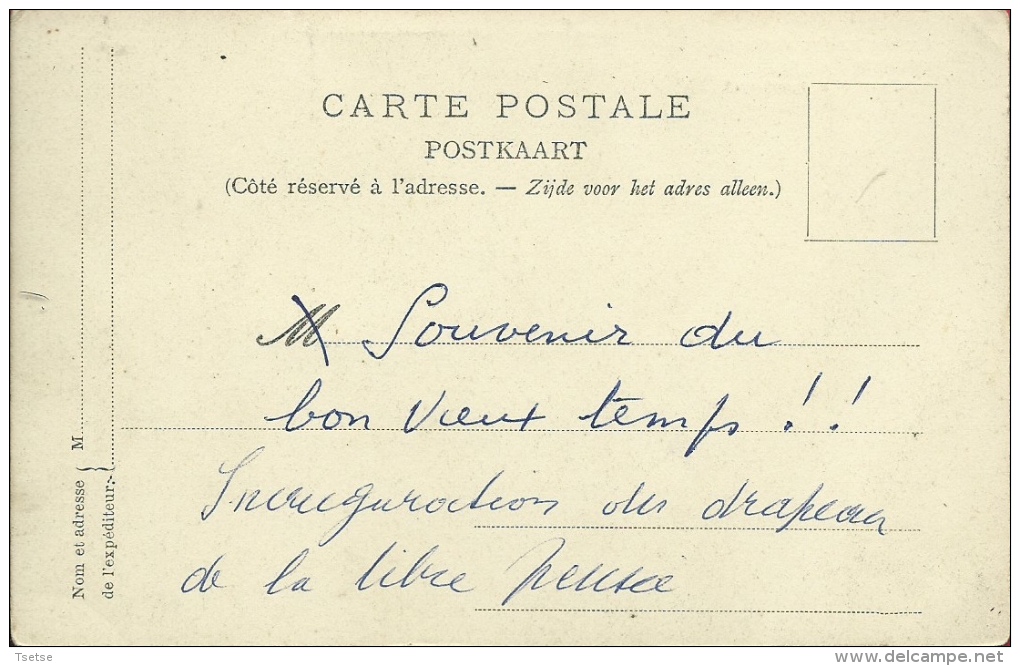 CARTE POSTALE
POSTKAART
(Côté réservé à l'adresse. — Zijde voor het adres alleen.)
M Souvenir du
bon vieux temps !!
Inauguration du drapeau
de la libre pensée
Nom et adresse { M
de l'expéditeur:-
Tsetse
delcampe.net